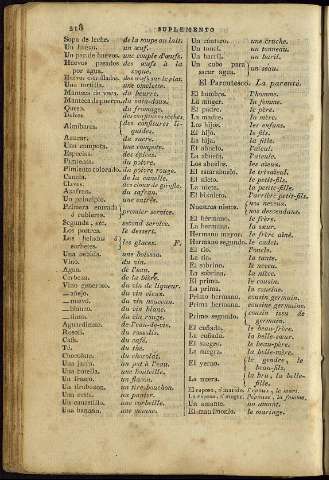 218 SUPLEMENTO
Sopa de leche. de la soupe au lait.
Un huevo. un œuf.
Un par de huevos. une couple d'œufs.
Huevos pasados des œufs à la
por agua. coque.
Una tortilla. une omelette.
Manteca de vaca. du beurre.
Manteca de puerco. du sain-doux.
Queso. du fromage.
Dulces. des confitures sèches.
Almibares. des confitures li-
quides.
Azucar. du sucre.
Una compota. une compote.
Especias. des épices.
Pimienta. du poivre.
Pimiento colorado. du poivre rouge.
Canela. de la cannelle.
Claves. des clous de girofle.
Azafran. du safran.
Un principio. une entrée.
Primera entrada
ó cubierto. premier service.
Segunda, sec. second service.
Los postres. le dessert.
Los helados ó
sorbetes. les glaces. F.
Una bebida. une boisson.
Vino. du vin.
Agua. de l'eau.
Cerbeza. de la bière.
Vino generoso. du vin de liqueur.
—añejo. du vin vieux.
—nuevo. du vin nouveau.
—blanco. du vin blanc.
—tinto. du vin rouge.
Aguardiente. de l'eau-de-vie.
Rosoli. du rossolis.
Café. du café.
Té. du thé.
Chocolate. du chocolat.
Un jarro. un pot à l'eau.
Una botella. une bouteille.
Un frasco. un flacon.
Un tirabuzon. un tire-bouchon.
Una cesta. un panier.
Un canastillo. une corbeille.
Una banasta. une manne.
Un cántaro. une cruche.
Un tonel. un tonneau.
Un barril. un baril.
Un cubo para
sacar agua. un seau.
El Parentesco. La parenté.
El hombre. l'homme.
La muger. la femme.
El padre. le père.
La madre. la mère.
Los hijos. les enfans.
El hijo. le fils.
La hija. la fille.
El abuelo. l'aïeul.
La abuela. l'aïeule.
Los abuelos. les aïeux.
El tatarabuelo. le trisaïeul.
El nieto. le petit-fils.
La nieta. la petite-fille.
El biznieto. l'arrière petit-fils.
Nuestros nietos. nos neveux.
nos descendans.
El hermano. le frère.
La hermana. la sœur.
Hermano mayor. le frère aîné.
Hermano segundo. le cadet.
El tio. l'oncle.
La tia. la tante.
El sobrino. le neveu.
La sobrina. la nièce.
El primo. le cousin.
La prima. la cousine.
Primo hermano. cousin germain.
Prima hermana. cousine germaine.
Primo segundo. cousin issu de
germain.
El cuñado. le beau-frère.
La cuñada. la belle-sœur.
El suegro. le beau-père.
La suegra. la belle-mère.
El yerno. le gendre, le
beau-fils.
La nuera. la bru, la belle-
fille.
El esposo, el marido. l'époux, le mari.
La esposa, la muger. l'épouse, la femme.
Un amante. un amant.
El matrimonio. le mariage.